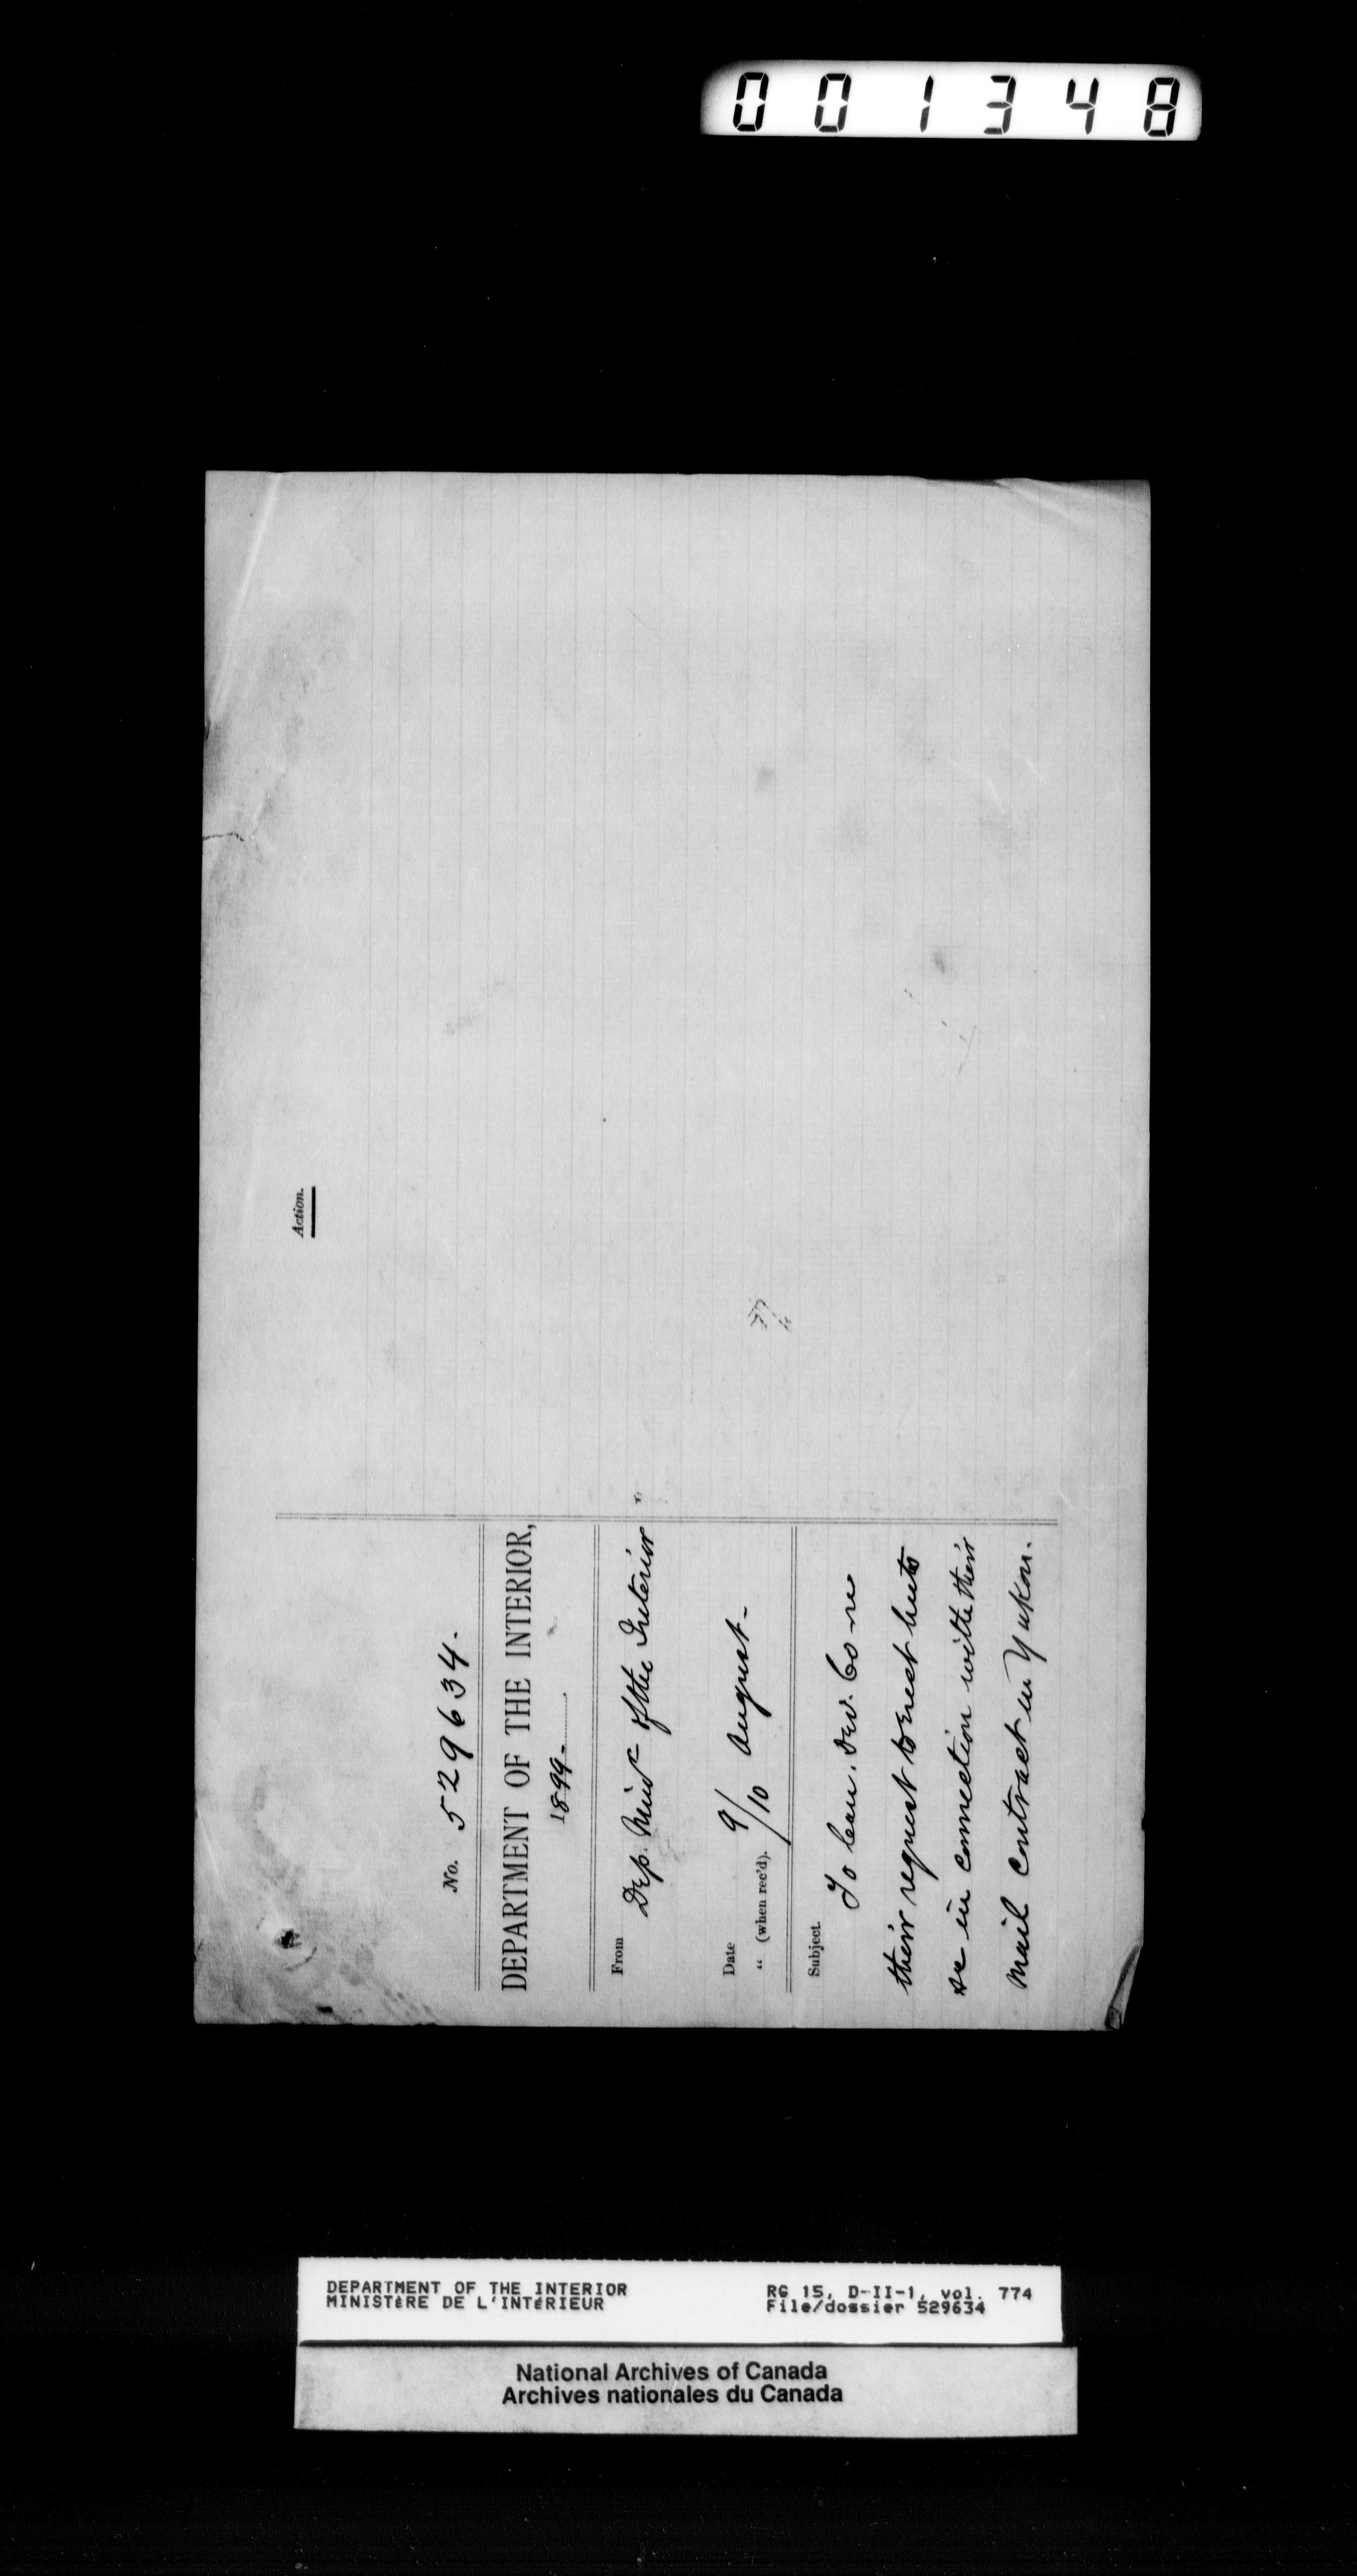 001348
Action.
No. 529634.
DEPARTMENT OF THE INTERIOR,
1899-
From Dep. Minr of the Interior
Date 9/10 August-
" (when rec'd).
Subject.
To Can. Dev. Co re
their request to erect huts
&c in connection with their
mail contract in Yukon.
DEPARTMENT OF THE INTERIOR
MINISTèRE DE L'INTéRIEUR
RG 15, D-II-1, vol. 774
File/dossier 529634
National Archives of Canada
Archives nationales du Canada